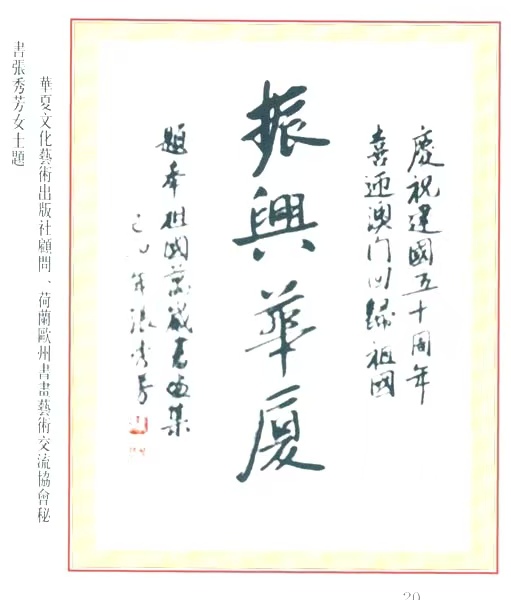 慶祝建國五十周年
喜迎澳门回歸祖國
振興華廈
題奉祖國萬歲書画集
己卯年張秀芳
華夏文化藝術出版社顧問、荷蘭歐州書畫藝術交流協會秘
書張秀芳女士題
20